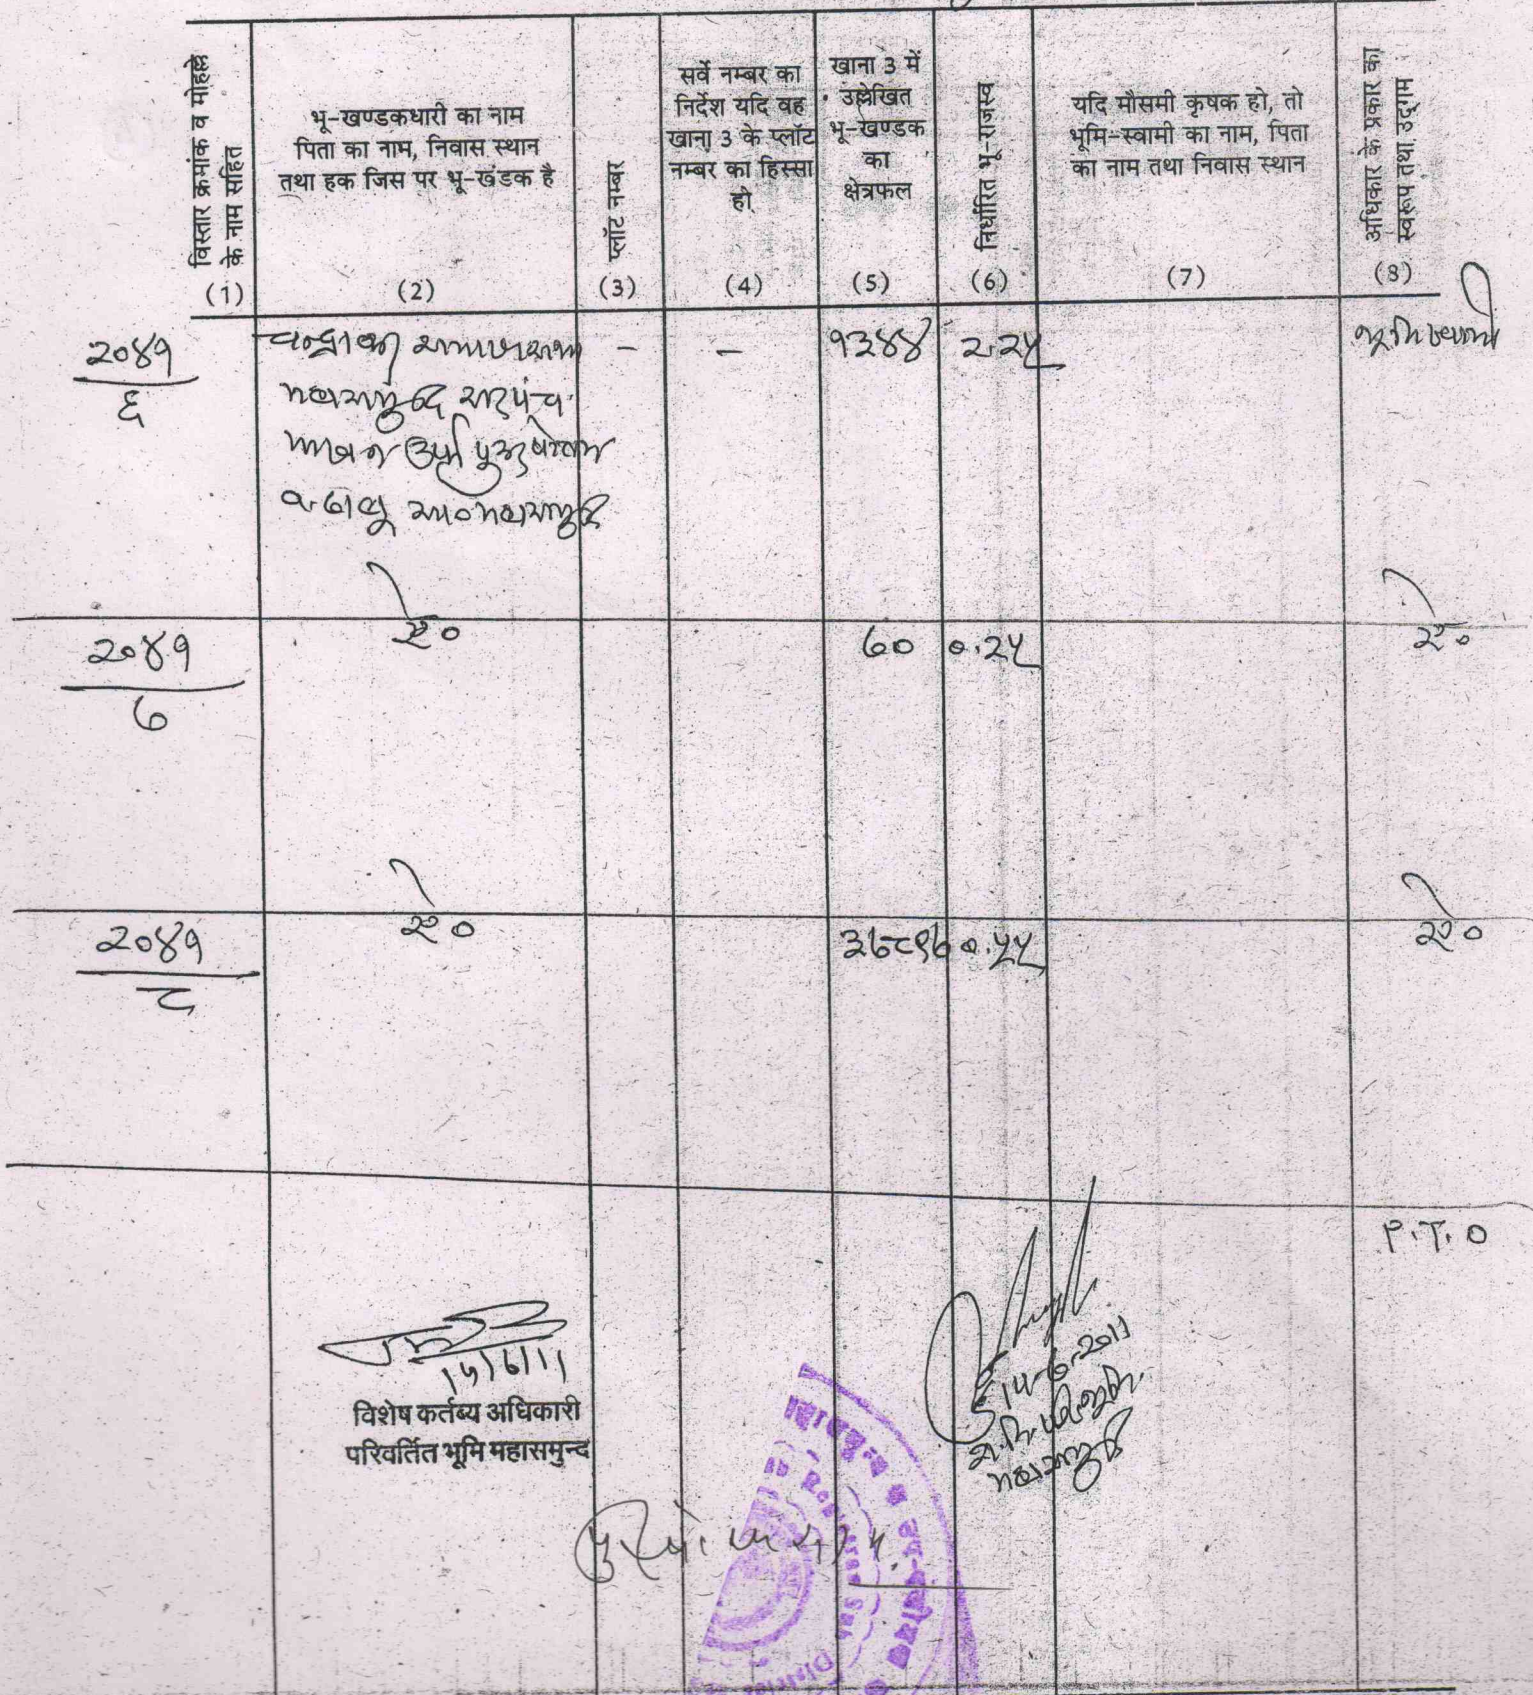 विस्तार क्रमांक व मोहल्ले
के नाम सहित
(1)
भू-खण्डकधारी का नाम
पिता का नाम, निवास स्थान
तथा हक जिस पर भू-खंडक है
(2)
प्लॉट नम्बर
(3)
सर्वे नम्बर का
निर्देश यदि वह
खाना 3 के प्लॉट
नम्बर का हिस्सा
हो
(4)
खाना 3 में
उल्लेखित
भू-खण्डक
का
क्षेत्रफल
(5)
निर्धारित भू-राजस्व
(6)
यदि मौसमी कृषक हो, तो
भूमि-स्वामी का नाम, पिता
का नाम तथा निवास स्थान
(7)
अधिकार के प्रकार का
स्वरूप तथा उद्गम
(8)
२०४१
६
महासमुंद सरपंच
उर्फ पुरुषोत्तम
सा० महासमुंद
-
-
१३४४
२.२५
भूमिस्वामी
२०४१
७
ऐ०
७०
०.२५
ऐ०
२०४१
८
ऐ०
३७८९७
०.५५
ऐ०
P.T.O
15/6/11
विशेष कर्तब्य अधिकारी
परिवर्तित भूमि महासमुन्द
14-6-2011
महासमुंद
उप-पंजीयक
Sub